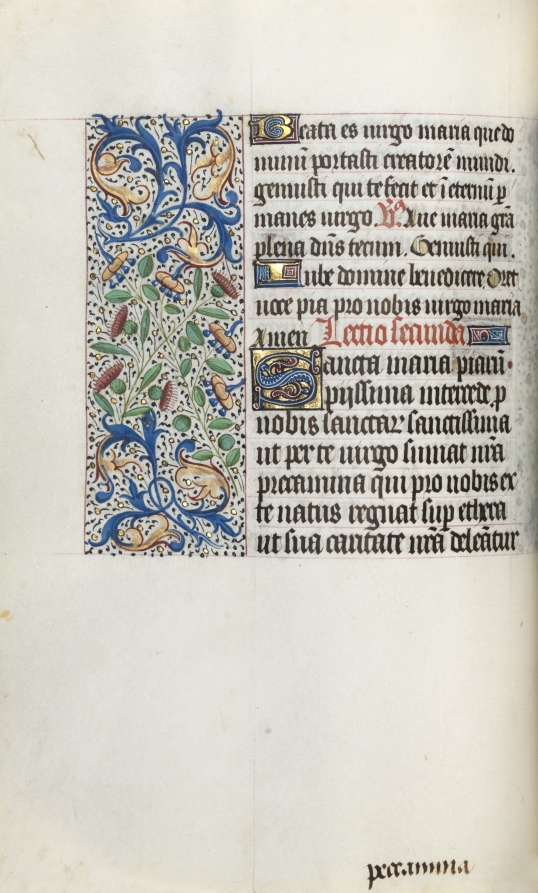 Beata es uirgo maria que do
minū portasti creatorē mundi.
genuisti qui te fecit et ī eternū p
manes uirgo. R̃. Aue maria grā
plena dñs tecum. Genuisti qui.
Iube domine benedicere Oret
uoce pia pro nobis uirgo maria
Amen Lectio secunda
Sancta maria piarū
piissima intercede p
nobis sanctarꝝ sanctissima
ut per te uirgo sumat nr̄a
precamina qui pro nobis ex
te natus regnat sup ethera
ut sua caritate nr̄a deleātur
peccamina